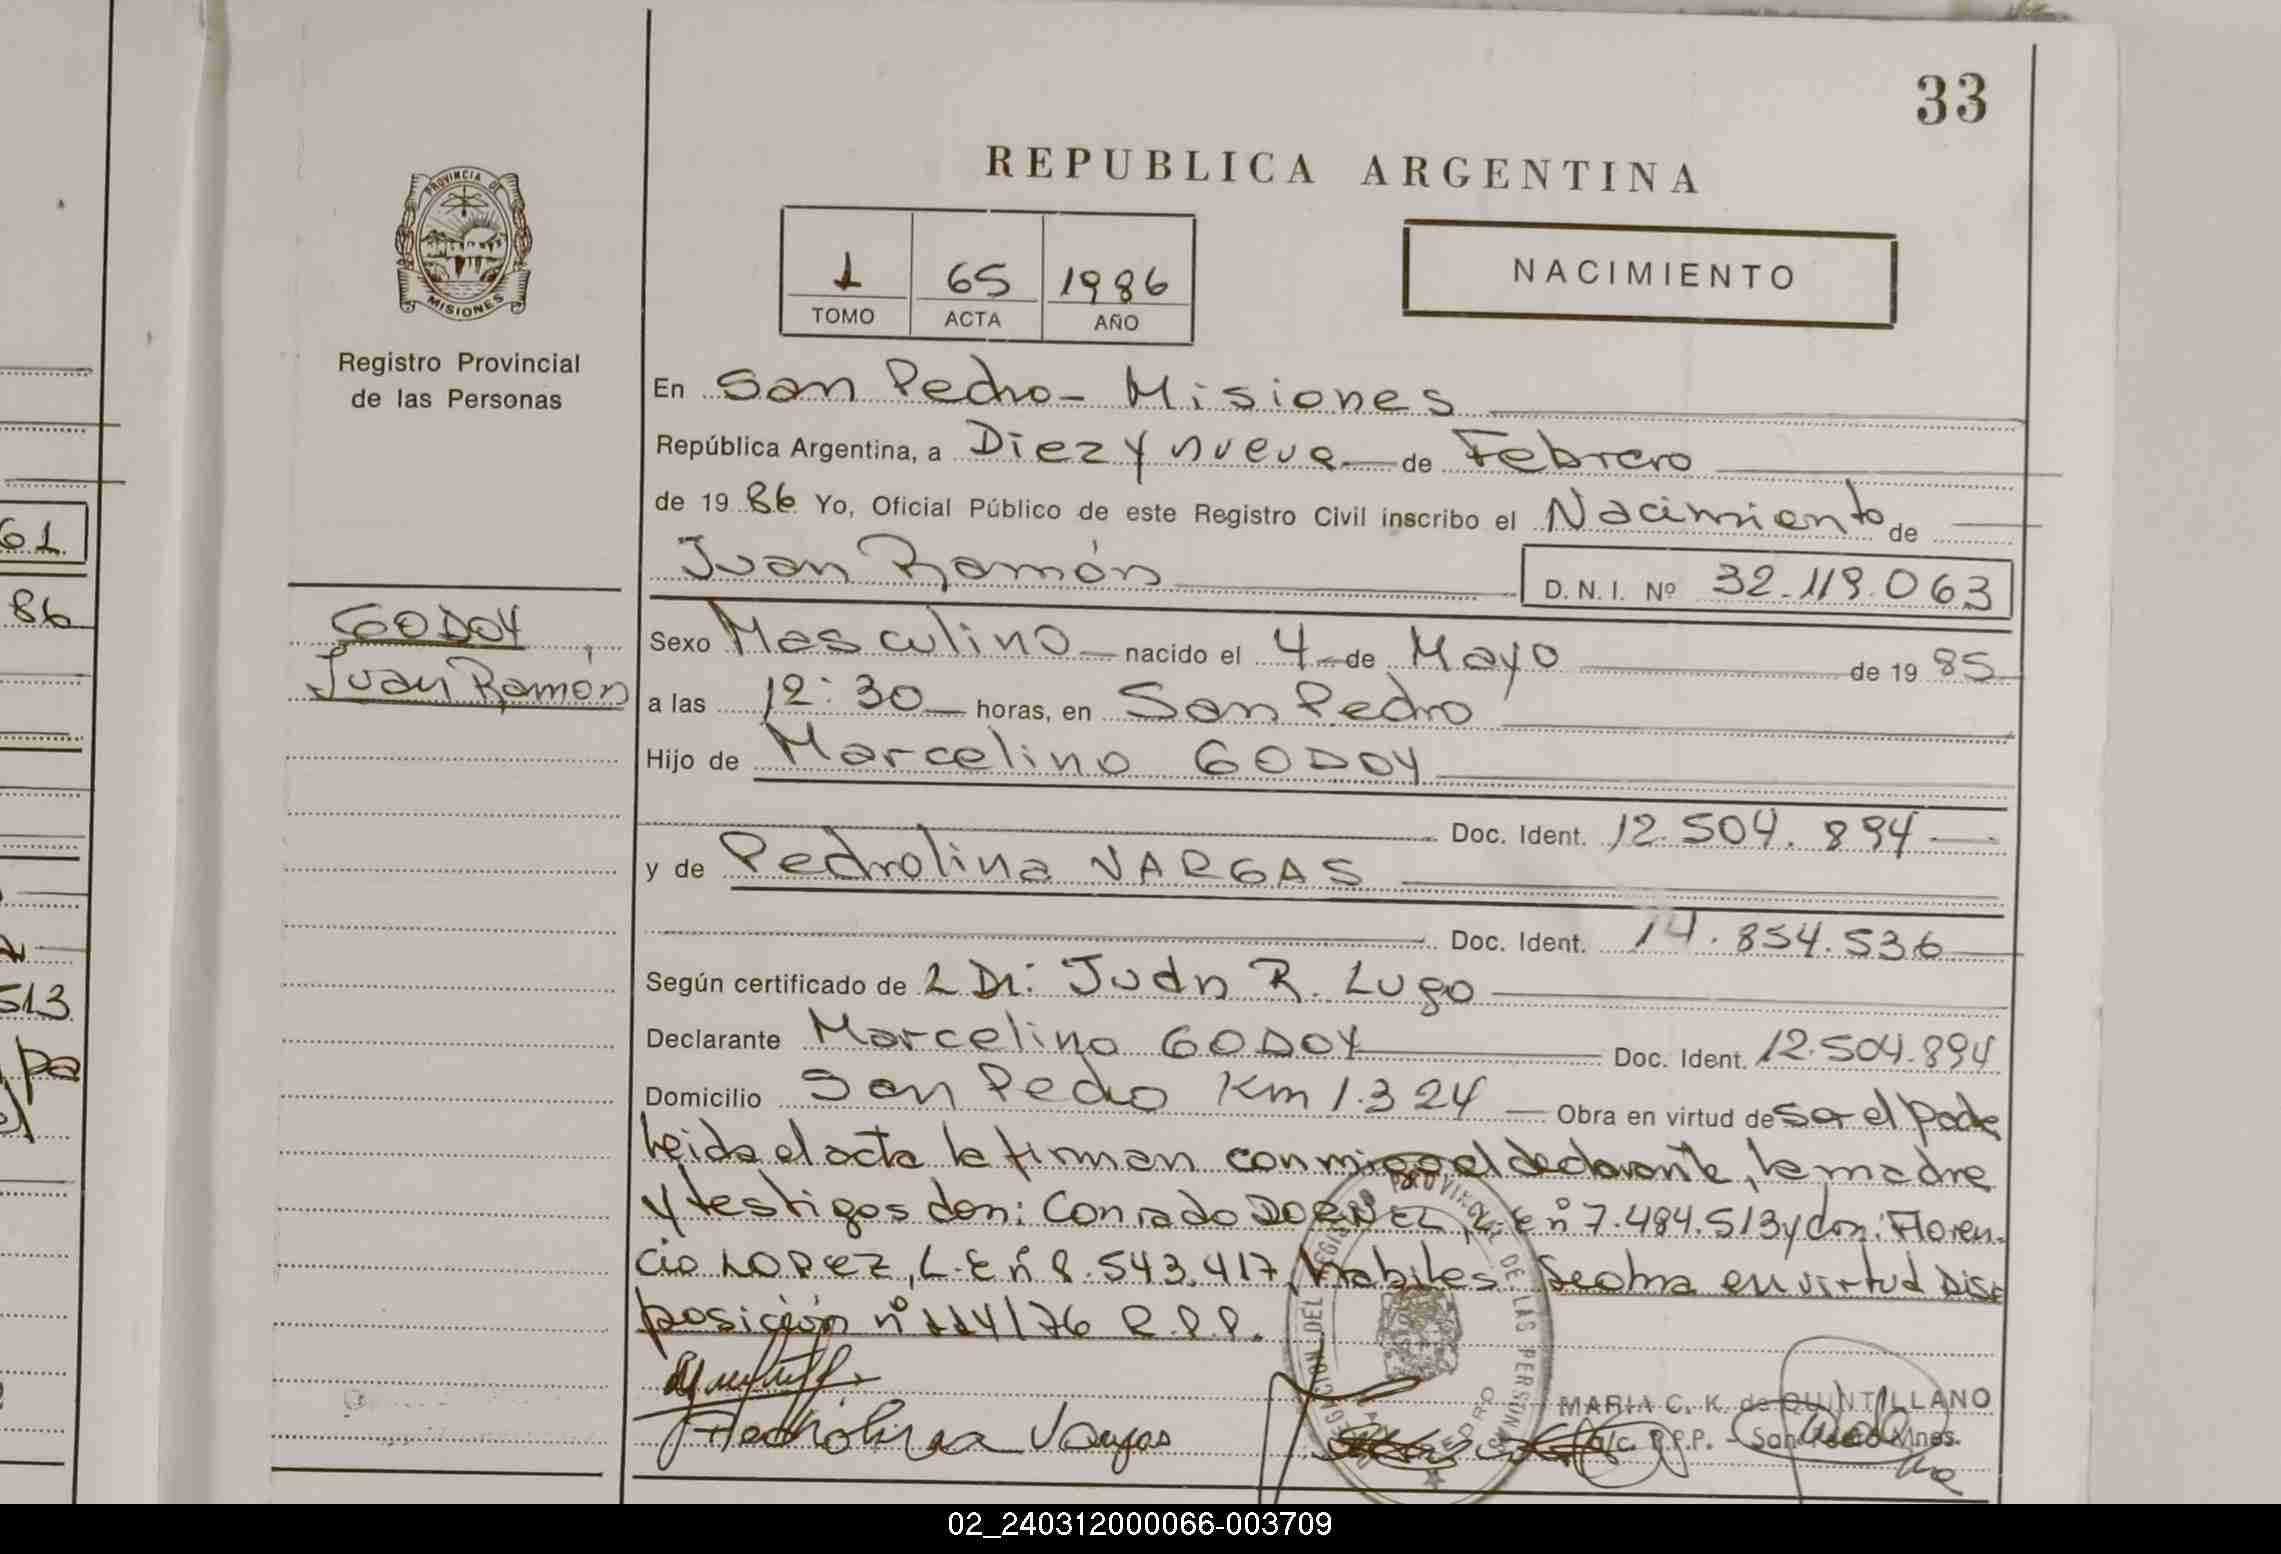 33
REPUBLICA ARGENTINA
PROVINCIA DE
MISIONES
Registro Provincial
de las Personas
1 65 1986
TOMO ACTA AÑO
NACIMIENTO
En San Pedro - Misiones
República Argentina, a Diez y nueve de Febrero
de 19 86 Yo, Oficial Público de este Registro Civil inscribo el Nacimiento de
Juan Ramón D.N.I. Nº 32.119.063
GODOY,
Juan Ramón
Sexo Masculino nacido el 4 de Mayo de 19 85
a las 12:30 horas, en San Pedro
Hijo de Marcelino GODOY
Doc. Ident. 12.504.894
y de Pedrolina VARGAS
Doc. Ident. 14.854.536
Según certificado de Dr: Juan R. Lugo
Declarante Marcelino GODOY Doc. Ident. 12.504.894
Domicilio San Pedro Km 1.324 Obra en virtud de ser el padre
Leida el acta la firman conmigo el declarante, la madre
y testigos don: Conrado DORNEL, L.E nº 7.484.513 y don: Floren-
cio LOPEZ, L.E nº 8.543.417, Habiles. Se obra en virtud Dis-
posición nº 114/76 R.P.P.
Pedrolina Vargas
MARIA C. K. de QUINTILLANO
a/c. R.P.P. - San Pedro Mnes.
61
86
513
pa
02_240312000066-003709